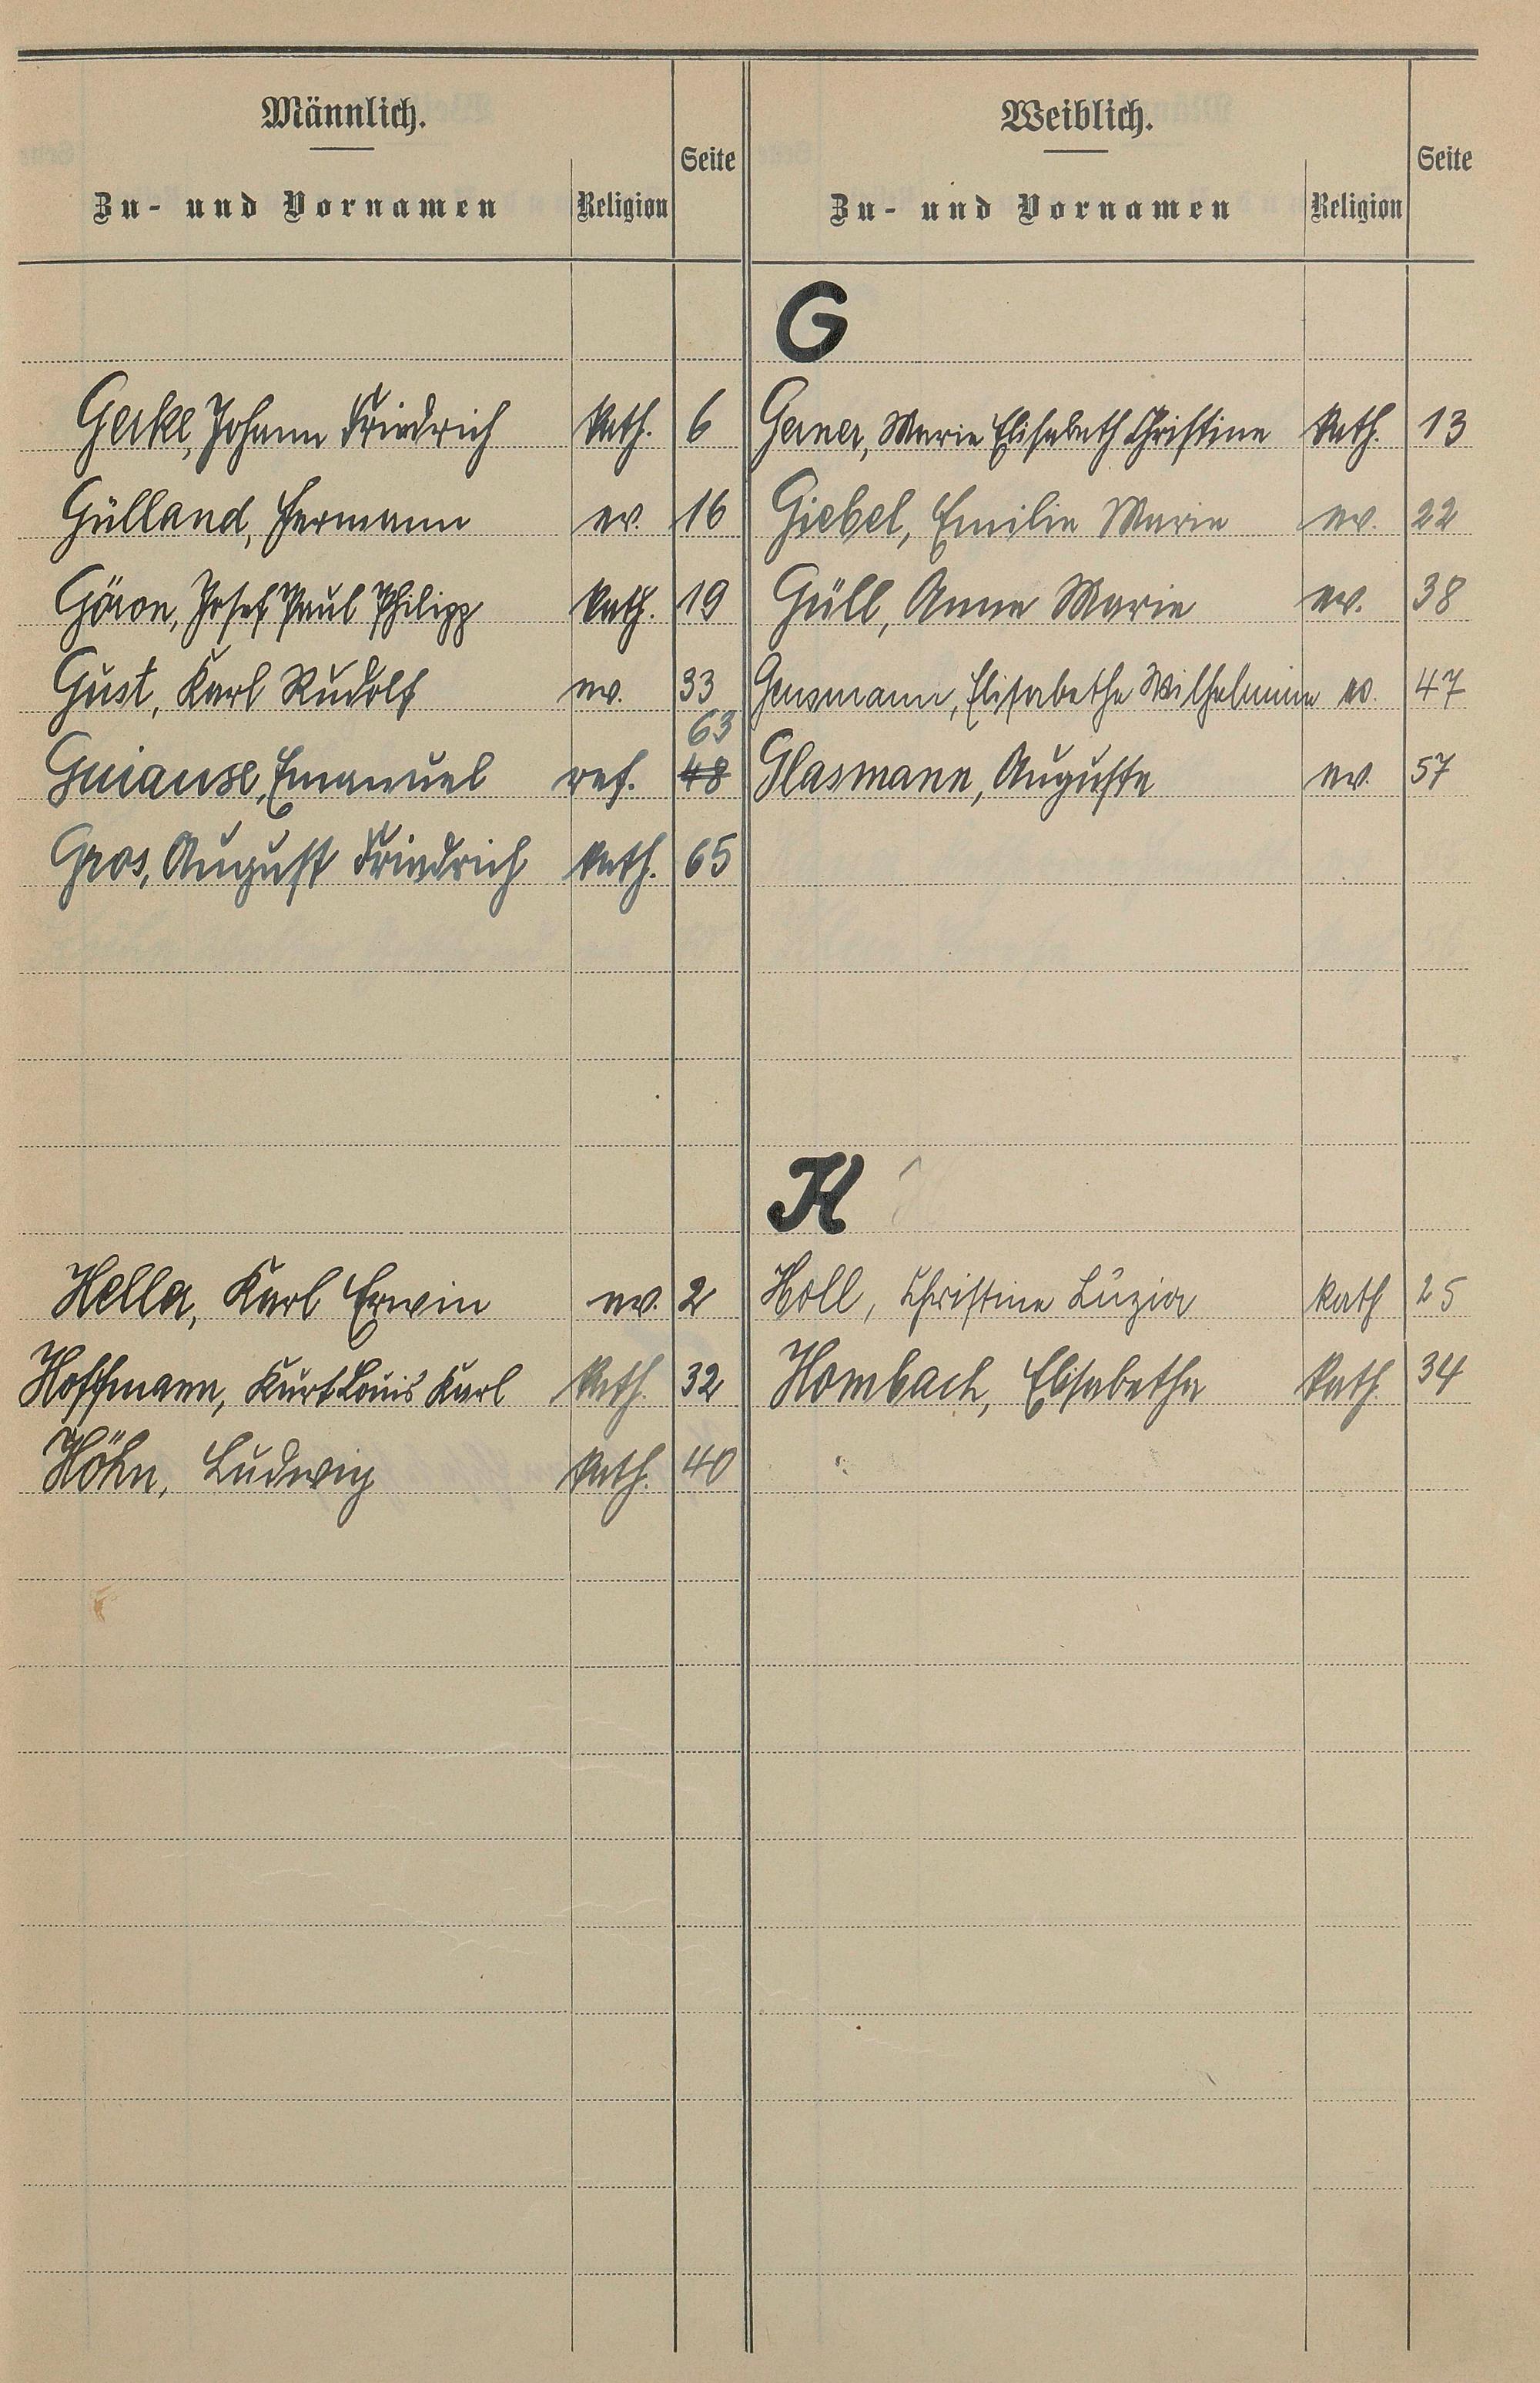 Männlich.
Zu- und Vornamen Religion Seite
Weiblich.
Zu- und Vornamen Religion Seite
G
Gerke, Johann Friedrich kath. 6 Gerner, Marie Elisabeth Christine kath. 13
Gülland, Hermann ev. 16 Giebel, Emilie Marie ev. 22
Göron, Josef Paul Philipp kath. 19 Güll, Anna Marie ev. 38
Gust, Karl Rudolf ev. 33 Gensmann, Elisabethe Wilhelmine ev. 47
63
Guiause, Emanuel ref. 48 Glasmann, Auguste ev. 57
Gros, August Friedrich kath. 65
H
Hella, Karl Erwin ev. 2 Holl, Christine Luzia kath 25
Hoffmann, Kurt Louis Karl kath. 32 Hombach, Elisabetha kath. 34
Höhn, Ludwig kath. 40